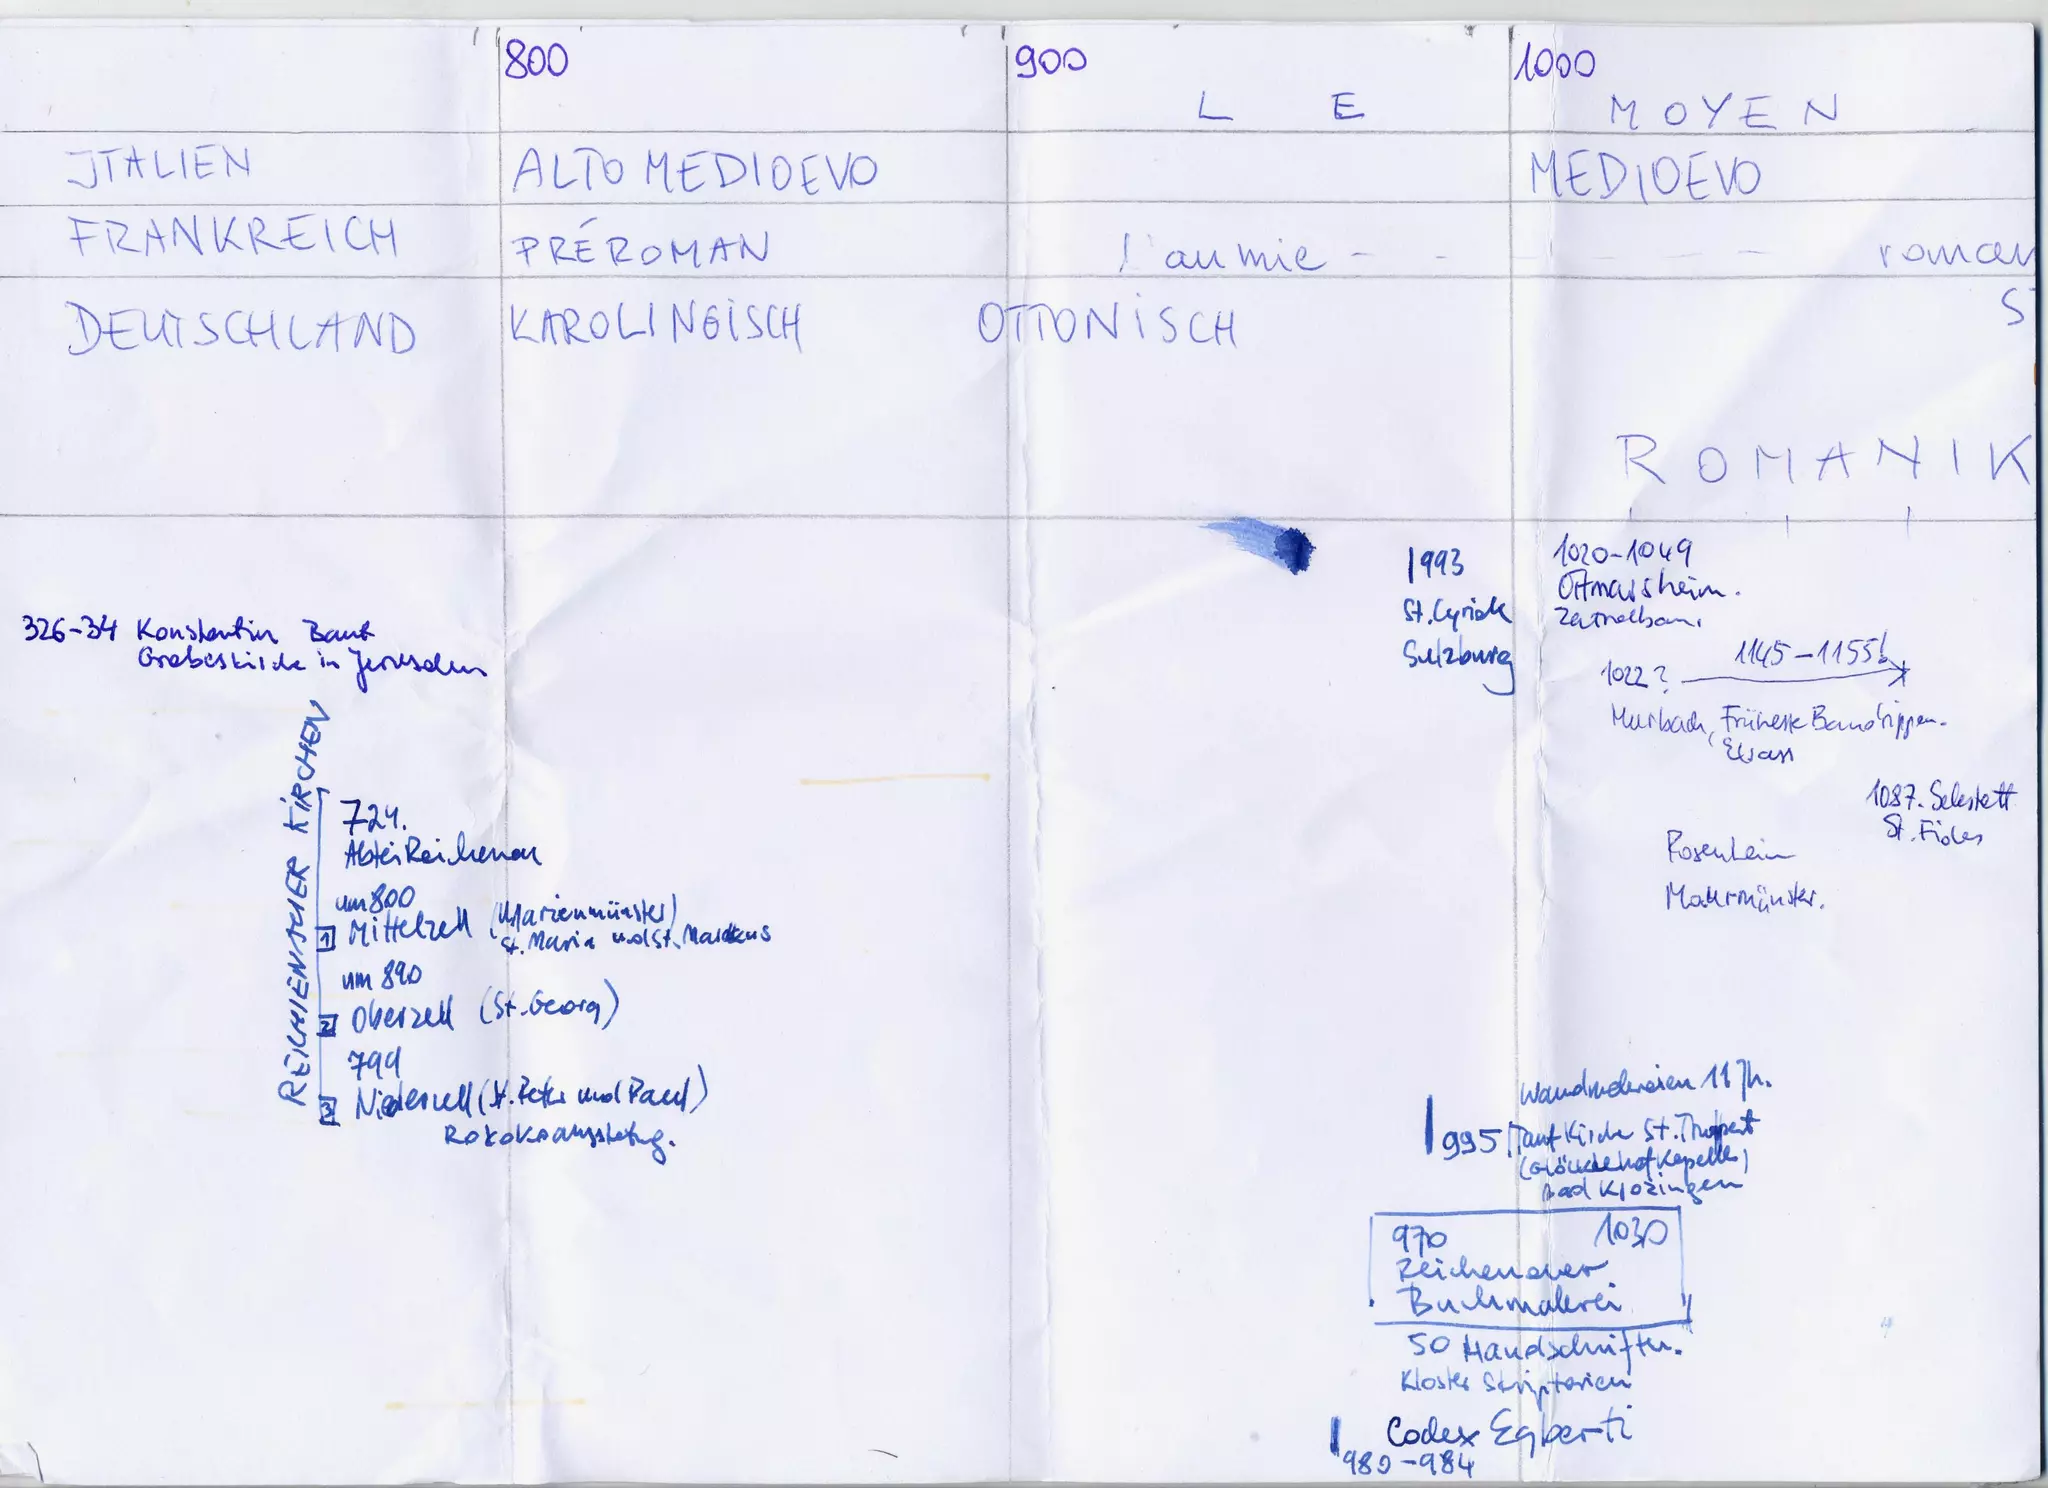 800
900
1000
L E MOYEN
JTALIEN
ALTO MEDIOEVO
MEDIOEVO
FRANKREICH
PRÉROMAN
roman
DEUTSCHLAND
KAROLINGISCH
OTTONISCH
S
ROMANIK
326-34 Konstantin Baut
Grabeskirche in Jerusalem
REICHENAUER KIRCHEN
724.
Abtei Reichenau
um 800
1 Mittelzell (Marienmünster)
St. Maria und St. Markus
um 890
2 Oberzell (St. Georg)
799
3 Niederzell (St. Peter und Paul)
Rokokoausstattung.
993
St. Cyriak
Sulzburg
1020-1049
Ottmarsheim.
Zentralbau.
1145-1155!
1022?
Murbach, Früheste Bandrippen.
Elsass
1087. Selestatt
St. Fides
Rosenheim
Maurmünster.
Wandmalereien 11 Jh.
995 Taufkirche St. Trupert
(Glöcklehofkapelle)
Bad Krozingen
970 1030
Reichenauer
Buchmalerei
50 Handschriften.
Kloster Skriptorien
Codex Egberti
980-984